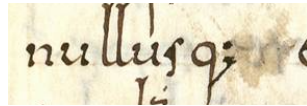 nulluſq;